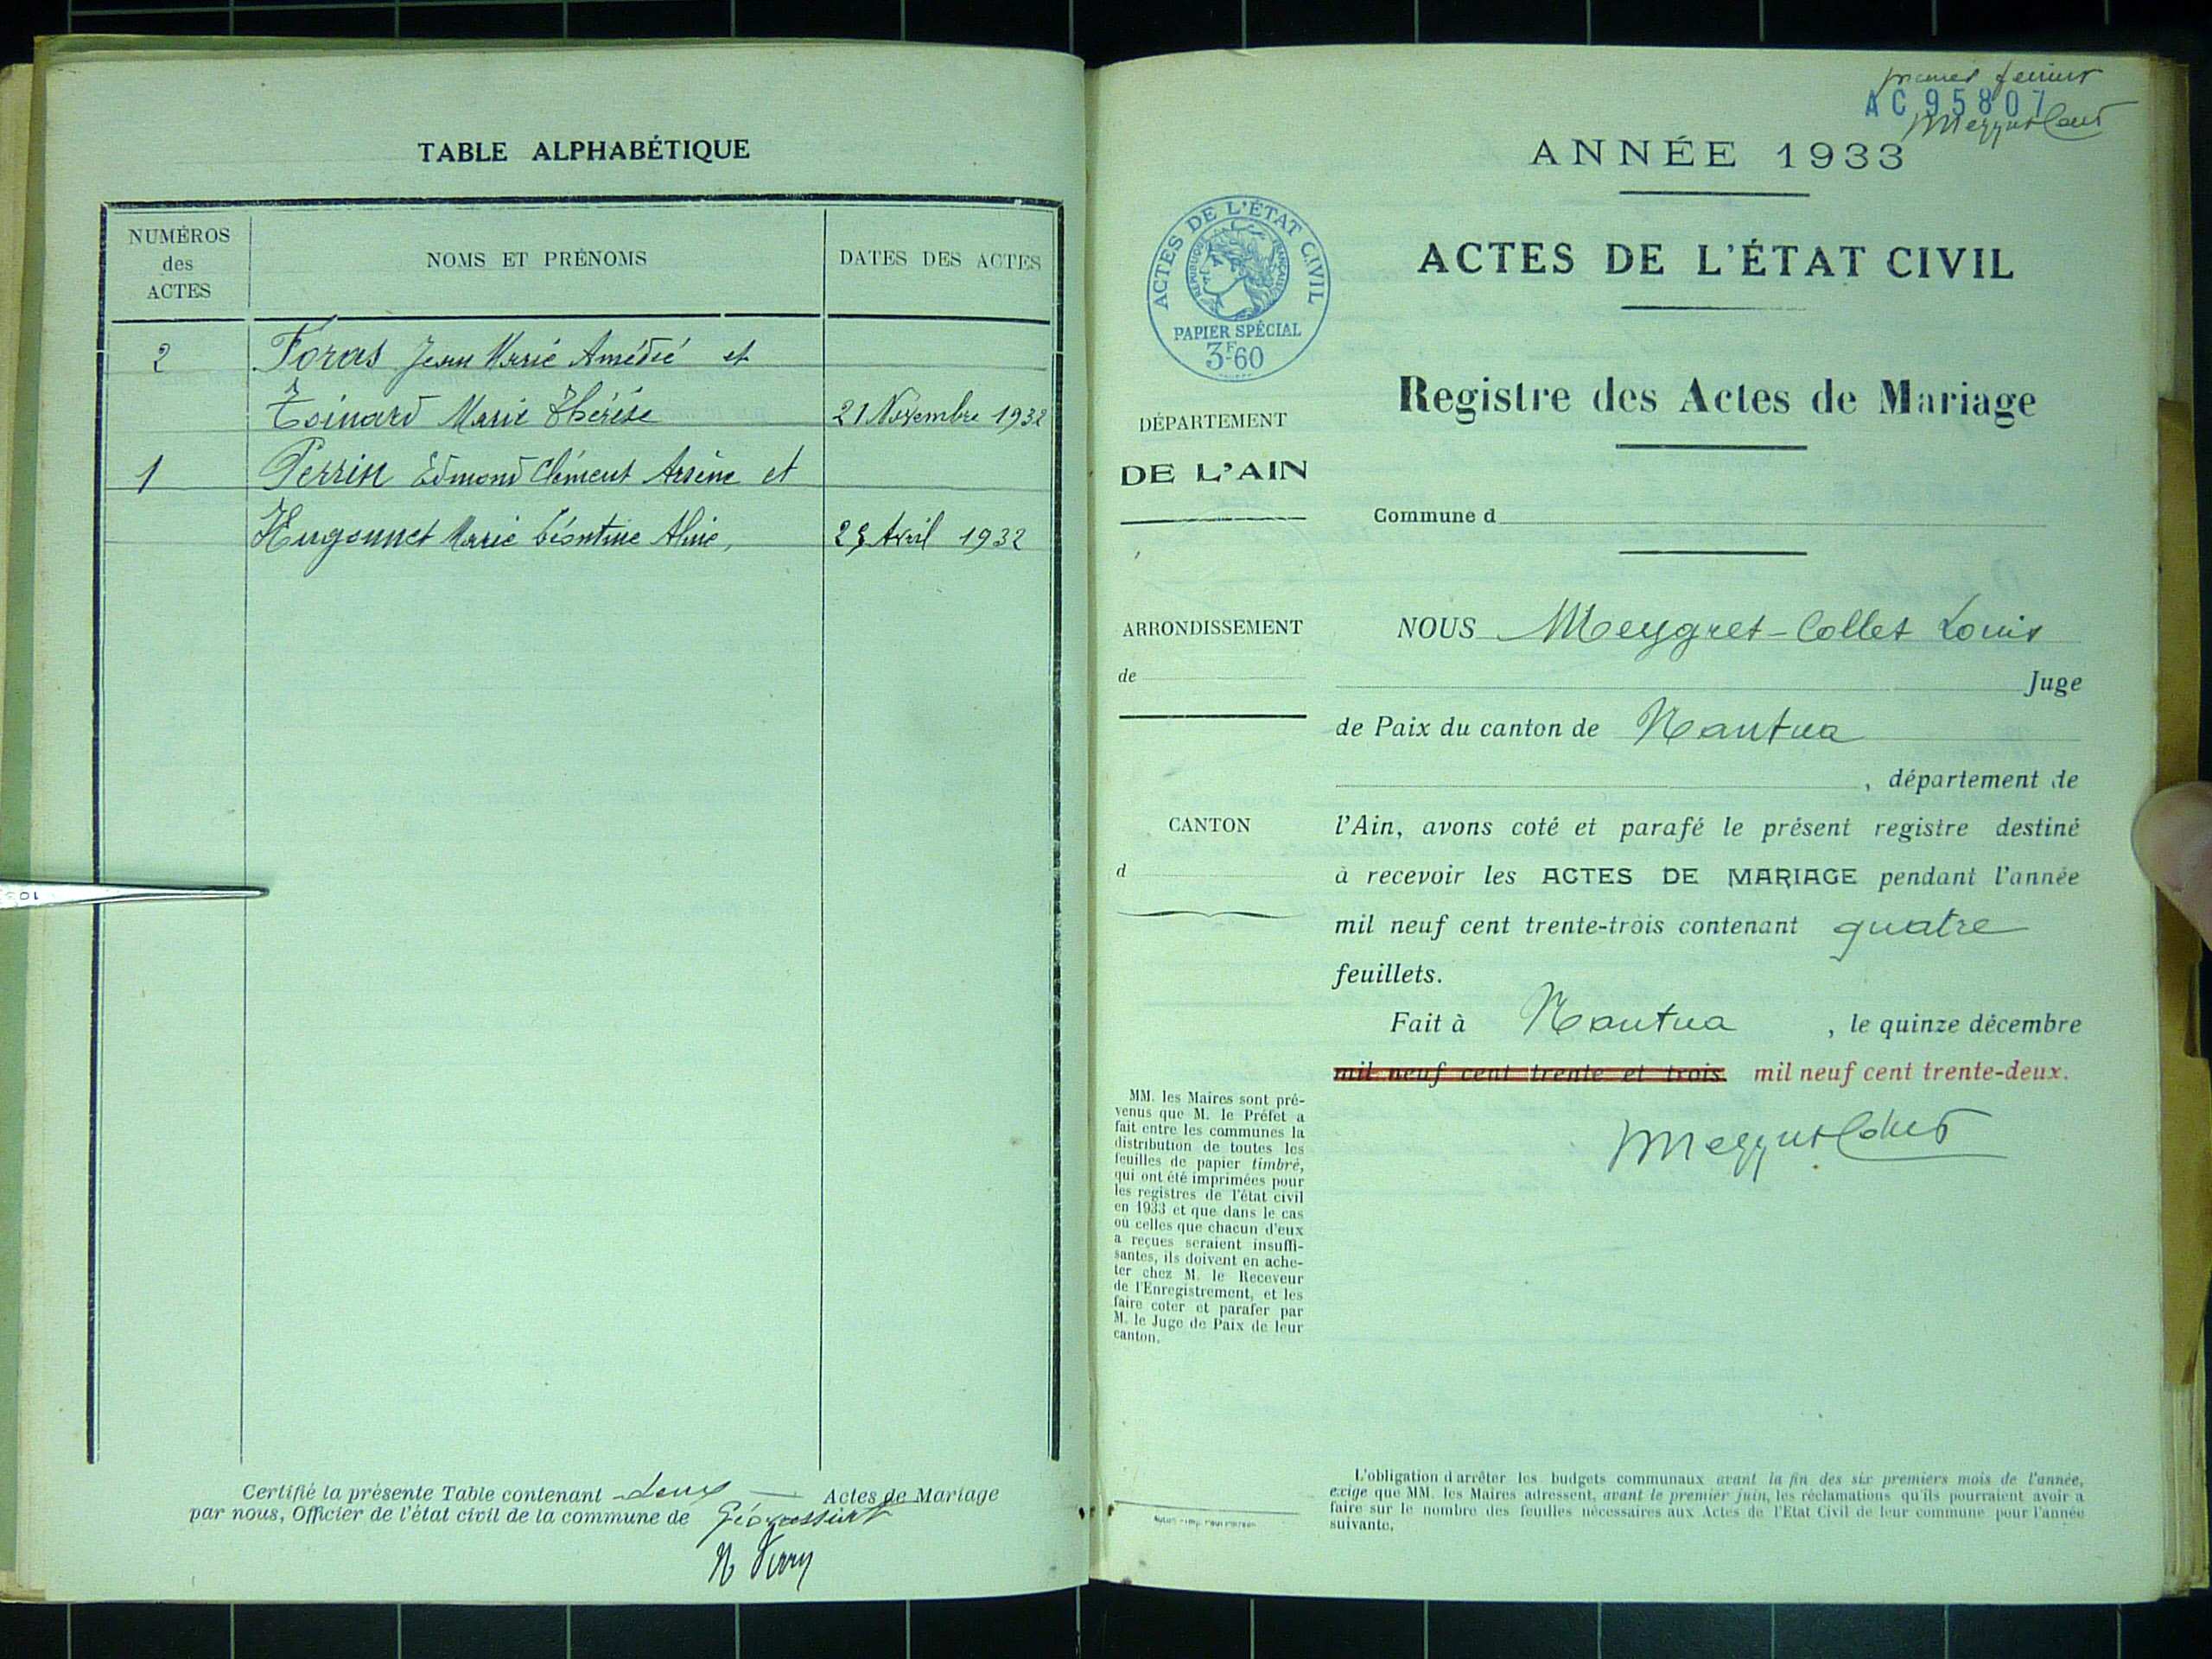 TABLE ALPHABÉTIQUE
NUMÉROS
des
ACTES
NOMS ET PRÉNOMS
DATES DES ACTES
2 Foras Jean Marie Amédée et
Toinard Marie Thérèse 21 Novembre 1932
1 Perrin Edmond Clément Arsène et
Hugonnet Marie Léontine Aline, Avril 1932
Certifié la présente Table contenant deux — Actes de Mariage
par nous, Officier de l'état civil de la commune de Géovreissiat
premier feuillet
AC 95807
ANNÉE 1933
ACTES DE L'ÉTAT CIVIL
RÉPUBLIQUE FRANÇAISE
PAPIER SPÉCIAL
3F60
ACTES DE L'ÉTAT CIVIL
Registre des Actes de Mariage
DÉPARTEMENT
DE L'AIN
Commune d
ARRONDISSEMENT
de
CANTON
d
NOUS Meygret-Collet Louis
Juge
de Paix du canton de Nantua
, département de
l'Ain, avons coté et parafé le présent registre destiné
à recevoir les ACTES DE MARIAGE pendant l'année
mil neuf cent trente-trois contenant quatre
feuillets.
Fait à Nantua , le quinze décembre
mil neuf cent trente et trois. mil neuf cent trente-deux.
MM. les Maires sont pré-
venus que M. le Préfet a
fait entre les communes la
distribution de toutes les
feuilles de papier timbré,
qui ont été imprimées pour
les registres de l'état civil
en 1933 et que dans le cas
où celles que chacun d'eux
a reçues seraient insuffi-
santes, ils doivent en ache-
ter chez M. le Receveur
de l'Enregistrement, et les
faire coter et parafer par
M. le Juge de Paix de leur
canton.
L'obligation d'arrêter les budgets communaux avant la fin des six premiers mois de l'année,
exige que MM. les Maires adressent, avant le premier juin, les réclamations qu'ils pourraient avoir à
faire sur le nombre des feuilles nécessaires aux Actes de l'Etat Civil de leur commune pour l'année
suivante.